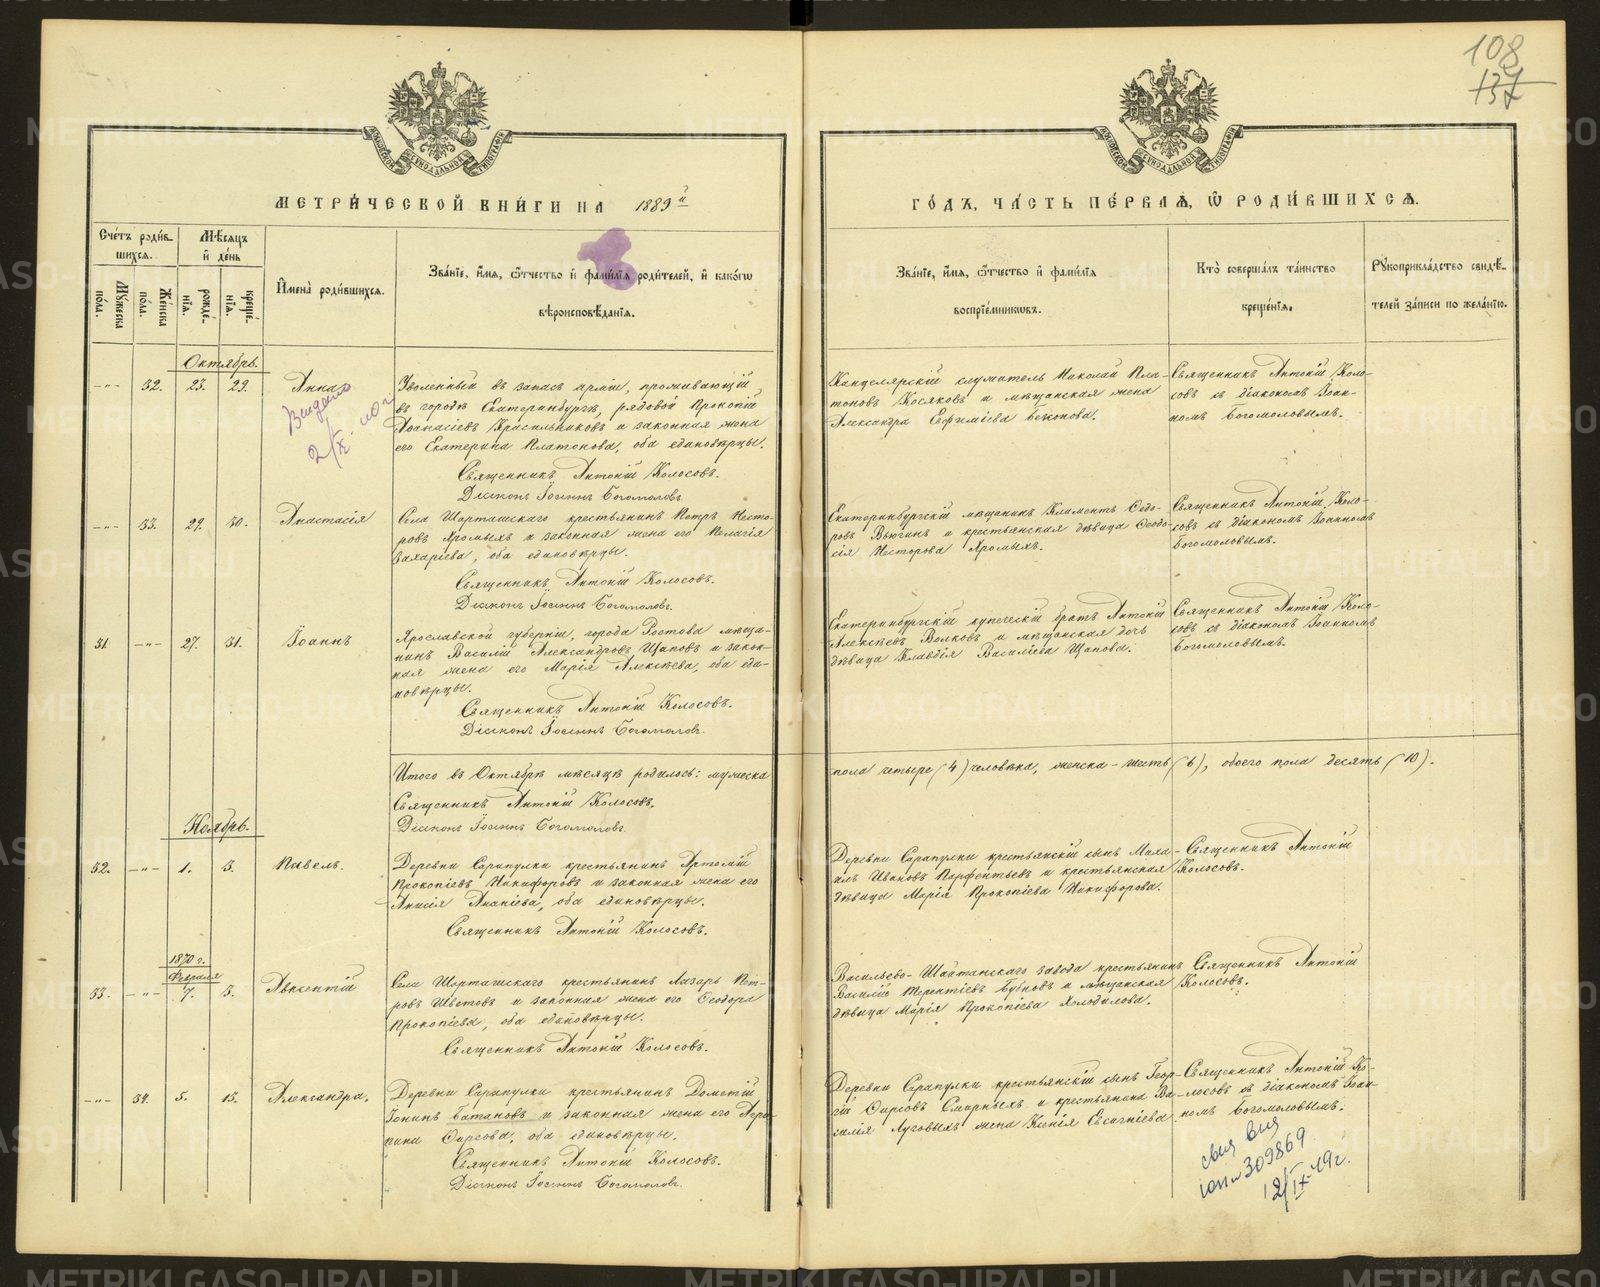 108
137
МЕТРИ́ЧЕСКОЙ КНИ́ГИ НА 1889й
ГО́ДЪ, ЧА́СТЬ ПЕ́РВАЯ, Ѡ РОДИ́ВШИХСЯ.
Сче́тъ роди́в-
шихся.
Мѣ́сяцъ
и де́нь
Му́жеска
по́ла.
Же́нска
по́ла.
рожде́-
нїя.
креще́-
нїя.
Имена̀ роди́вшихся.
Зва́нїе, и́мя, ѻ́тчество и фами́лїя роди́телей, и како́гѡ
вѣроисповѣ́данїя.
Зва́нїе, и́мя, ѻ́тчество и фами́лїя
воспрїе́мникѡвъ.
Кто̀ соверша́лъ та́инство
креще́нїя.
Рꙋкоприкла́дство свидѣ́-
телей за́писи по жела́нїю.
Октябрь.
-"- 32. 23. 29. Анна
Уволенный въ запасъ арміи, проживающій
въ городѣ Екатеринбургѣ, рядовой Прокопій
Аѳанасіевъ Красильниковъ и законная жена
его Екатерина Платонова, оба единовѣрцы.
Священникъ Антоній Колосовъ.
Діаконъ Іоаннъ Богомоловъ
Канцелярскій служитель Николай Пла-
тоновъ Косяковъ и мѣщанская жена
Александра Ефиміева
Священникъ Антоній Коло-
совъ съ діакономъ Іоан-
номъ Богомоловымъ.
-"- 33. 29. 30. Анастасія
Села Шарташскаго крестьянинъ Петръ Несто-
ровъ Хромыхъ и законная жена его Пелагія
Захаріева, оба единовѣрцы.
Священникъ Антоній Колосовъ.
Діаконъ Іоаннъ Богомоловъ.
Екатеринбургскій мѣщанинъ Климентъ Ѳедо-
ровъ Вьюгинъ и крестьянская дѣвица Ѳеодо-
сія Несторова Хромыхъ.
Священникъ Антоній Коло-
совъ съ діакономъ Іоанномъ
Богомоловымъ.
31. -"- 27. 31. Іоаннъ
Ярославской губерніи, города Ростова мѣща-
нинъ Василій Александровъ Щаповъ и закон-
ная жена его Марія Алексѣева, оба еди-
новѣрцы.
Священникъ Антоній Колосовъ.
Діаконъ Іоаннъ Богомоловъ.
Екатеринбургскій купеческій братъ Антоній
Алексѣевъ Волковъ и мѣщанская дочь
дѣвица Клавдія Василіева Щапова.
Священникъ Антоній Коло-
совъ съ діакономъ Іоанномъ
Богомоловымъ.
Итого въ Октябрѣ мѣсяцѣ родилось: мужеска
пола четыре (4) человѣка, женска – шесть (6), обоего пола десять (10).
Священникъ Антоній Колосовъ.
Діаконъ Іоаннъ Богомоловъ.
Ноябрь.
32. -"- 1. 3. Павелъ.
Деревни Сарапулки крестьянинъ Артемій
Прокопіевъ Никифоровъ и законная жена его
Анисія Ананіева, оба единовѣрцы.
Священникъ Антоній Колосовъ.
Деревни Сарапулки крестьянскій сынъ Миха-
илъ Ивановъ Парфентьевъ и крестьянская
дѣвица Марія Прокопіева Никифорова.
Священникъ Антоній
Колосовъ.
1870 г.
Февраля
33. -"- 7. 3. Авксентій
Села Шарташскаго крестьянинъ Лазарь Пет-
ровъ Цвѣтовъ и законная жена его Ѳеодора
Прокопіева, оба единовѣрцы.
Священникъ Антоній Колосовъ.
Васильево-Шайтанскаго завода крестьянинъ
Василій Терентіевъ Бубновъ и мѣщанская
дѣвица Марія Прокопіева Холодилова.
Священникъ Антоній
Колосовъ.
-"- 34. 5. 15. Александра.
Деревни Сарапулки крестьянинъ Дометій
Іонинъ Батановъ и законная жена его Ири-
рина Ѳирсова, оба единовѣрцы.
Священникъ Антоній Колосовъ.
Діаконъ Іоаннъ Богомоловъ.
Деревни Сарапулки крестьянскій сынъ Геор-
гій Ѳирсовъ Смирныхъ и крестьянина Ва-
силія Луговыхъ жена Ксенія Евсигніева.
Священникъ Антоній Ко-
лосовъ съ діакономъ Іоан-
номъ Богомоловымъ.
309869
12/IX-49г.
METRIKI.GASO-URAL.RU